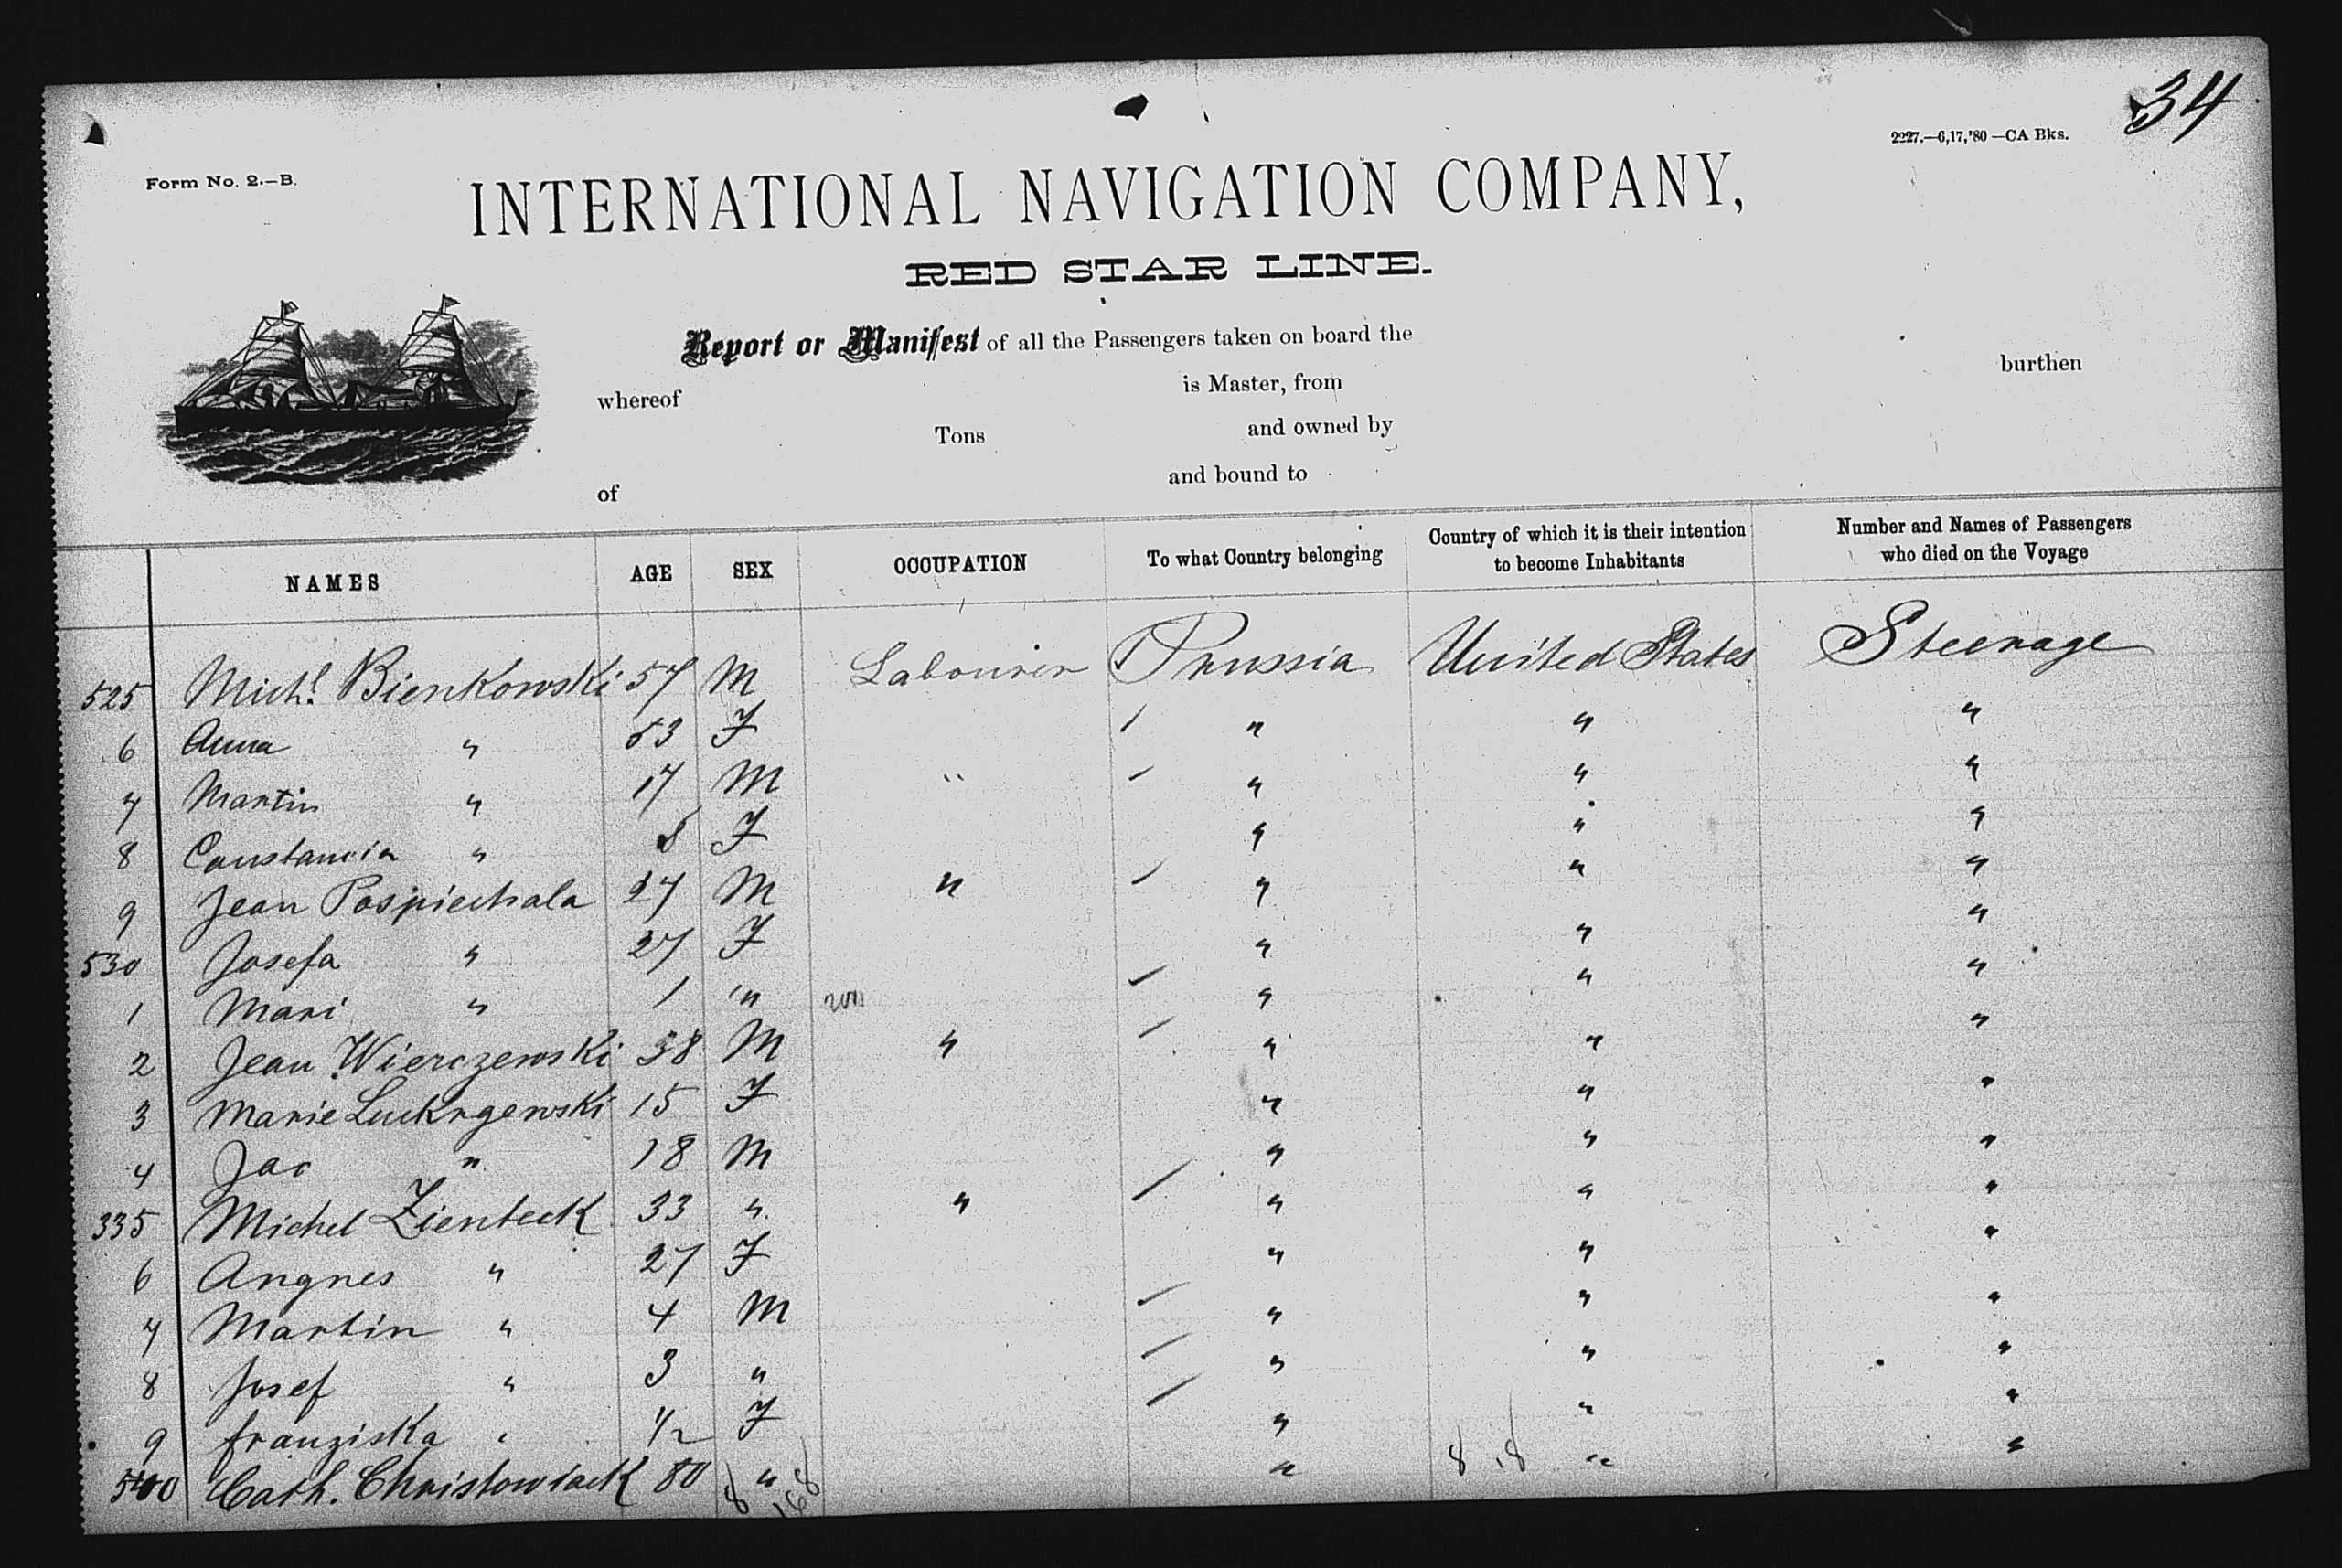 34
2227.—6,17,'80—CA Bks.
Form No. 2.—B.
INTERNATIONAL NAVIGATION COMPANY,
RED STAR LINE.
Report or Manifest of all the Passengers taken on board the
whereof is Master, from burthen
Tons and owned by
of and bound to
NAMES AGE SEX OCCUPATION To what Country belonging Country of which it is their intention to become Inhabitants Number and Names of Passengers who died on the Voyage
525 Michl. Bienkowski 57 M Labourer Prussia United States Steerage
6 Anna " 53 F " " "
7 Martin " 17 M " " " "
8 Constancia " 8 F " " "
9 Jean Pospiechala 27 M " " " "
530 Josefa " 27 F " " "
1 Mari " 1 " " " "
2 Jean Wierczewski 38 M " " " "
3 Marie Luckrgewski 15 F " " "
4 Jac " 18 M " " "
335 Michel Zienteck 33 " " " " "
6 Angnes " 27 F " " "
7 Martin " 4 M " " "
8 Josef " 3 " " " "
9 franziska " 1/2 F " " "
540 Cath. Christowiack 80 " " " "
8 168 8 18